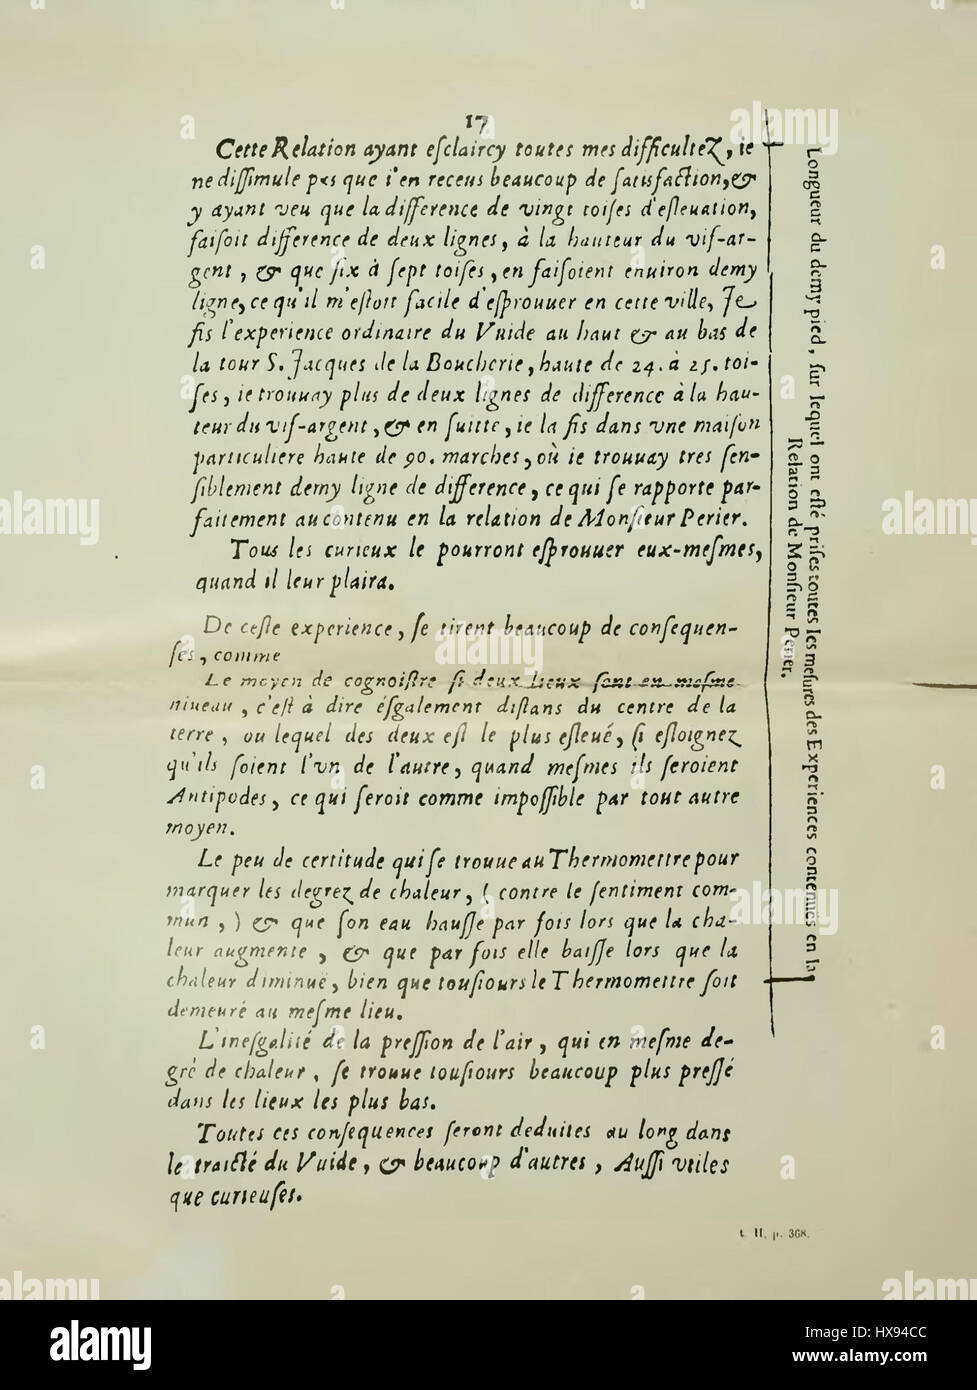 17
Cette Relation ayant esclaircy toutes mes difficultez, ie
ne dissimule pas que i'en receus beaucoup de satisfaction, &
y ayant veu que la difference de vingt toises d'esleuation,
faisoit difference de deux lignes, à la hauteur du vif-ar-
gent, & que six à sept toises, en faisoient enuiron demy
ligne, ce qu'il m'estoit facile d'esprouuer en cette ville, Je
fis l'experience ordinaire du Vuide au haut & au bas de
la tour S. Jacques de la Boucherie, haute de 24. à 25. toi-
ses, ie trouuay plus de deux lignes de difference à la hau-
teur du vif-argent, & en suitte, ie la fis dans vne maison
particuliere haute de 90. marches, où ie trouuay tres sen-
siblement demy ligne de difference, ce qui se rapporte par-
faitement au contenu en la relation de Monsieur Perier.
Tous les curieux le pourront esprouuer eux-mesmes,
quand il leur plaira.
De ceste experience, se tirent beaucoup de consequen-
ses, comme
Le moyen de cognoistre si deux lieux sont en mesme
niueau, c'est à dire ésgalement distans du centre de la
terre, ou lequel des deux est le plus esleué, si esloignez
qu'ils soient l'vn de l'autre, quand mesmes ils seroient
Antipodes, ce qui seroit comme impossible par tout autre
moyen.
Le peu de certitude qui se trouue au Thermomettre pour
marquer les degrez de chaleur, (contre le sentiment com-
mun,) & que son eau hausse par fois lors que la cha-
leur augmente, & que par fois elle baisse lors que la
chaleur diminuë, bien que tousiours le Thermomettre soit
demeuré au mesme lieu.
L'inesgalité de la pression de l'air, qui en mesme de-
gré de chaleur, se trouue tousiours beaucoup plus pressé
dans les lieux les plus bas.
Toutes ces consequences seront deduites au long dans
le traicté du Vuide, & beaucoup d'autres, Aussi vtiles
que curieuses.
Longueur du demy pied, sur lequel ont esté prises toutes les mesures des Experiences contenuës en la
Relation de Monsieur Perier.
t. II, p. 368.
alamy
alamy
Image ID: HX94CC
www.alamy.com